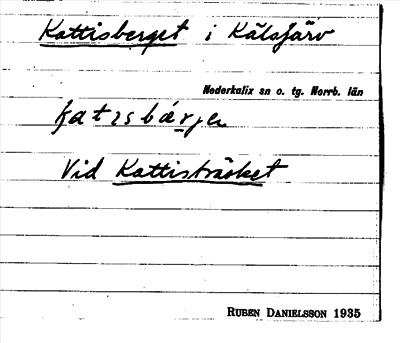 Kattisberget i Kälsjärv
Nederkalix sn o. tg. Norrb. län
Vid Kattisträsket
RUBEN DANIELSSON 1935